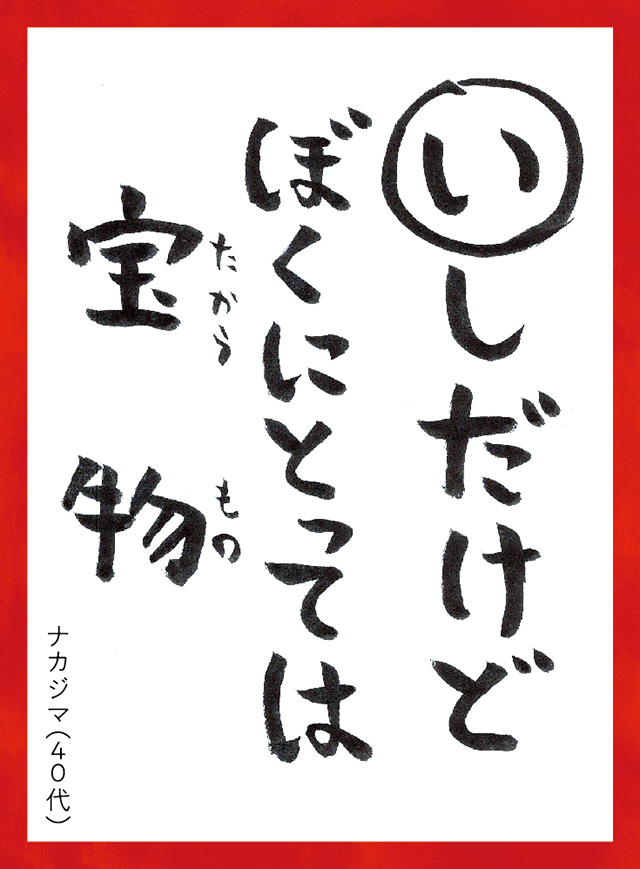 いしだけど
ぼくにとっては
たから もの
宝物
ナカジマ(40代)